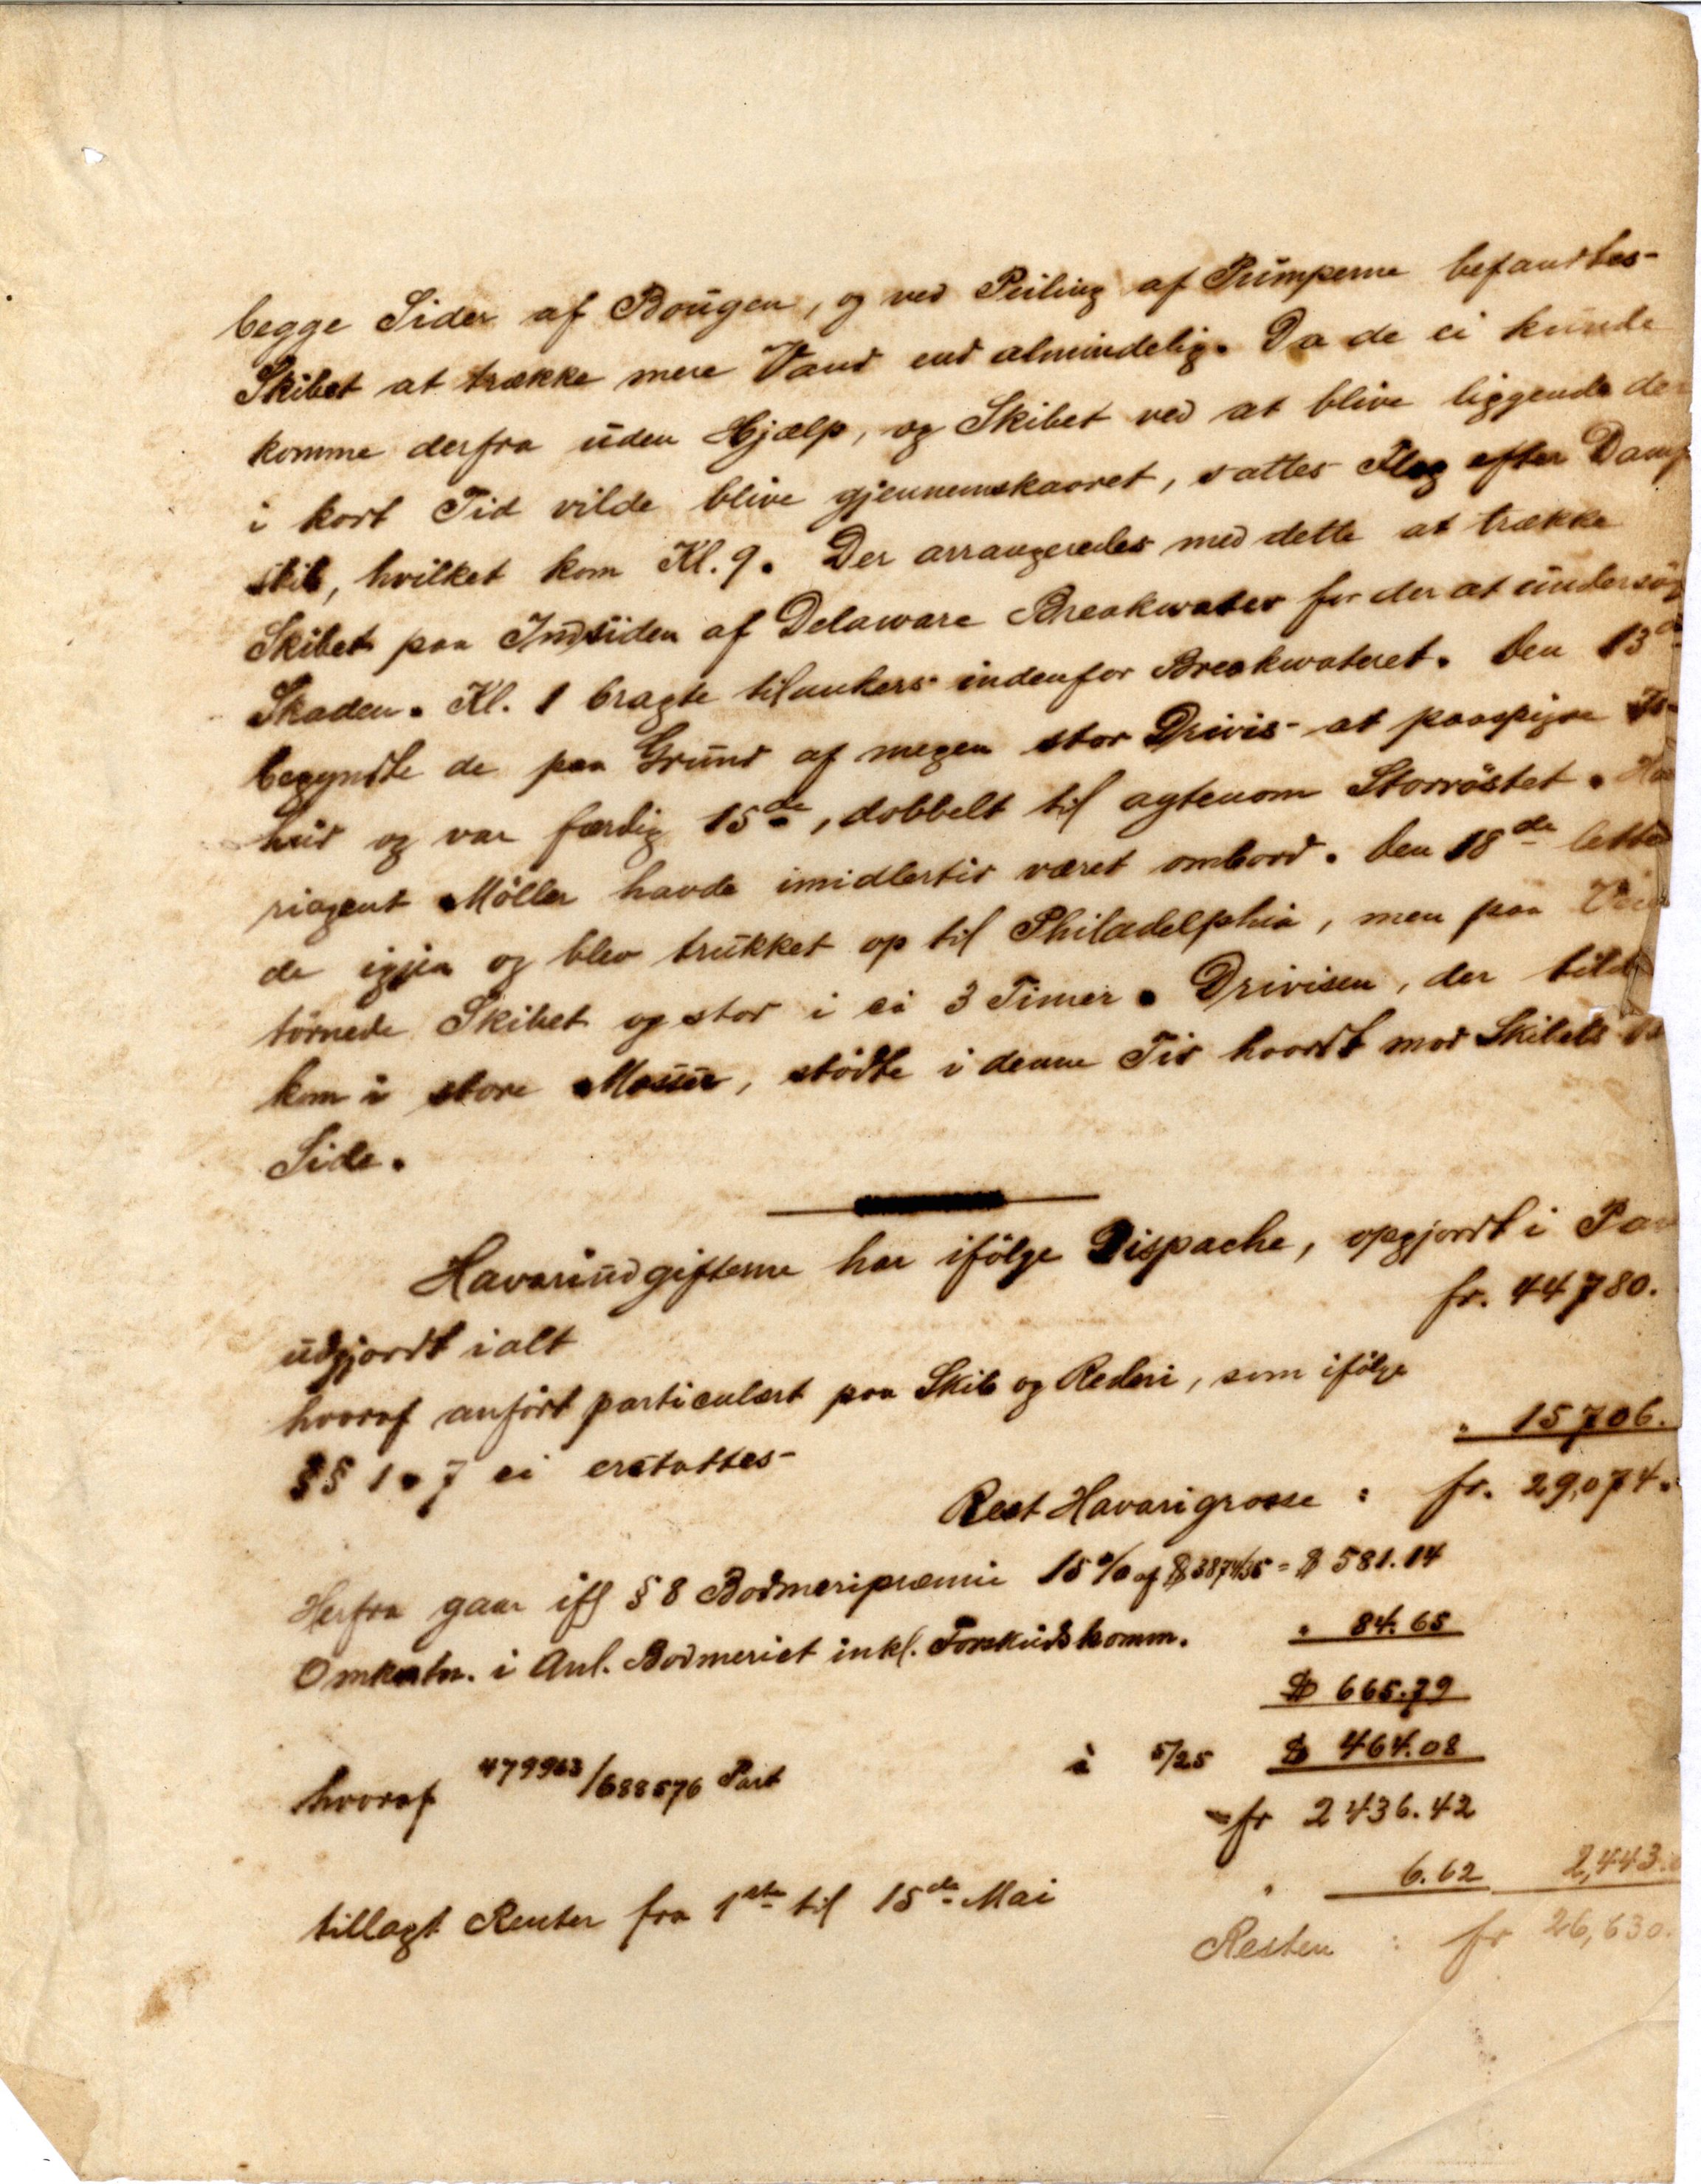 begge Sider af Bougen, og ved Peiling af Pumperne befandtes
Skibet at trække mere Vand end almindelig. Da de ei kunde
komme derfra uden Hjælp, og Skibet ved at blive liggende der
i kort Tid vilde blive gjennemskaaret, sattes Flag efter Damp
skib, hvilket kom Kl. 9. Der arrangeredes med dette at trække
Skibet paa Indsiden af Delaware Breakwater for der at undersøg
Skaden. Kl. 1 bragte tilankers indenfor Breakwateret. Den 13de
begyndte de paa Grund af megen stor Drivis at paaspigre Is-
hud og var færdig 15de, dobbelt til agtenom Storröstet. Hav
riagent Möller havde imidlertid været ombord. Den 18de letted
de igjen og blev trukket op til Philadelphia, men paa Vei
törnede Skibet og stod i ei 3 Timer. Drivisen, der tild
kom i store Masser, stödte i denne Tid haardt mod Skibets
Side.
Havariudgifterne har ifölge Dispache, opgjordt i Pa
udgjordt ialt fr. 44780.
hvoraf anfört particulært paa Skib og Rederi, som ifölge
§§ 1 • 7 ei erstattes " 15706.
Rest Havarigrosse : fr. 29,074.
Herfra gaar ifl § 8 Bodmeripræmie 15 % af $ 3874/35 = $ 581.14
Omkostn. i Anl. Bodmeriet inkl. Forskudskomm. " 84.65
$ 665.79
hvoraf 479963/688576 Part à 5/25 $ 464.08
= fr 2436.42
tillagt Renter fra 1ste til 15de Mai " 6.62 2,443.
Resten : fr 26,630.